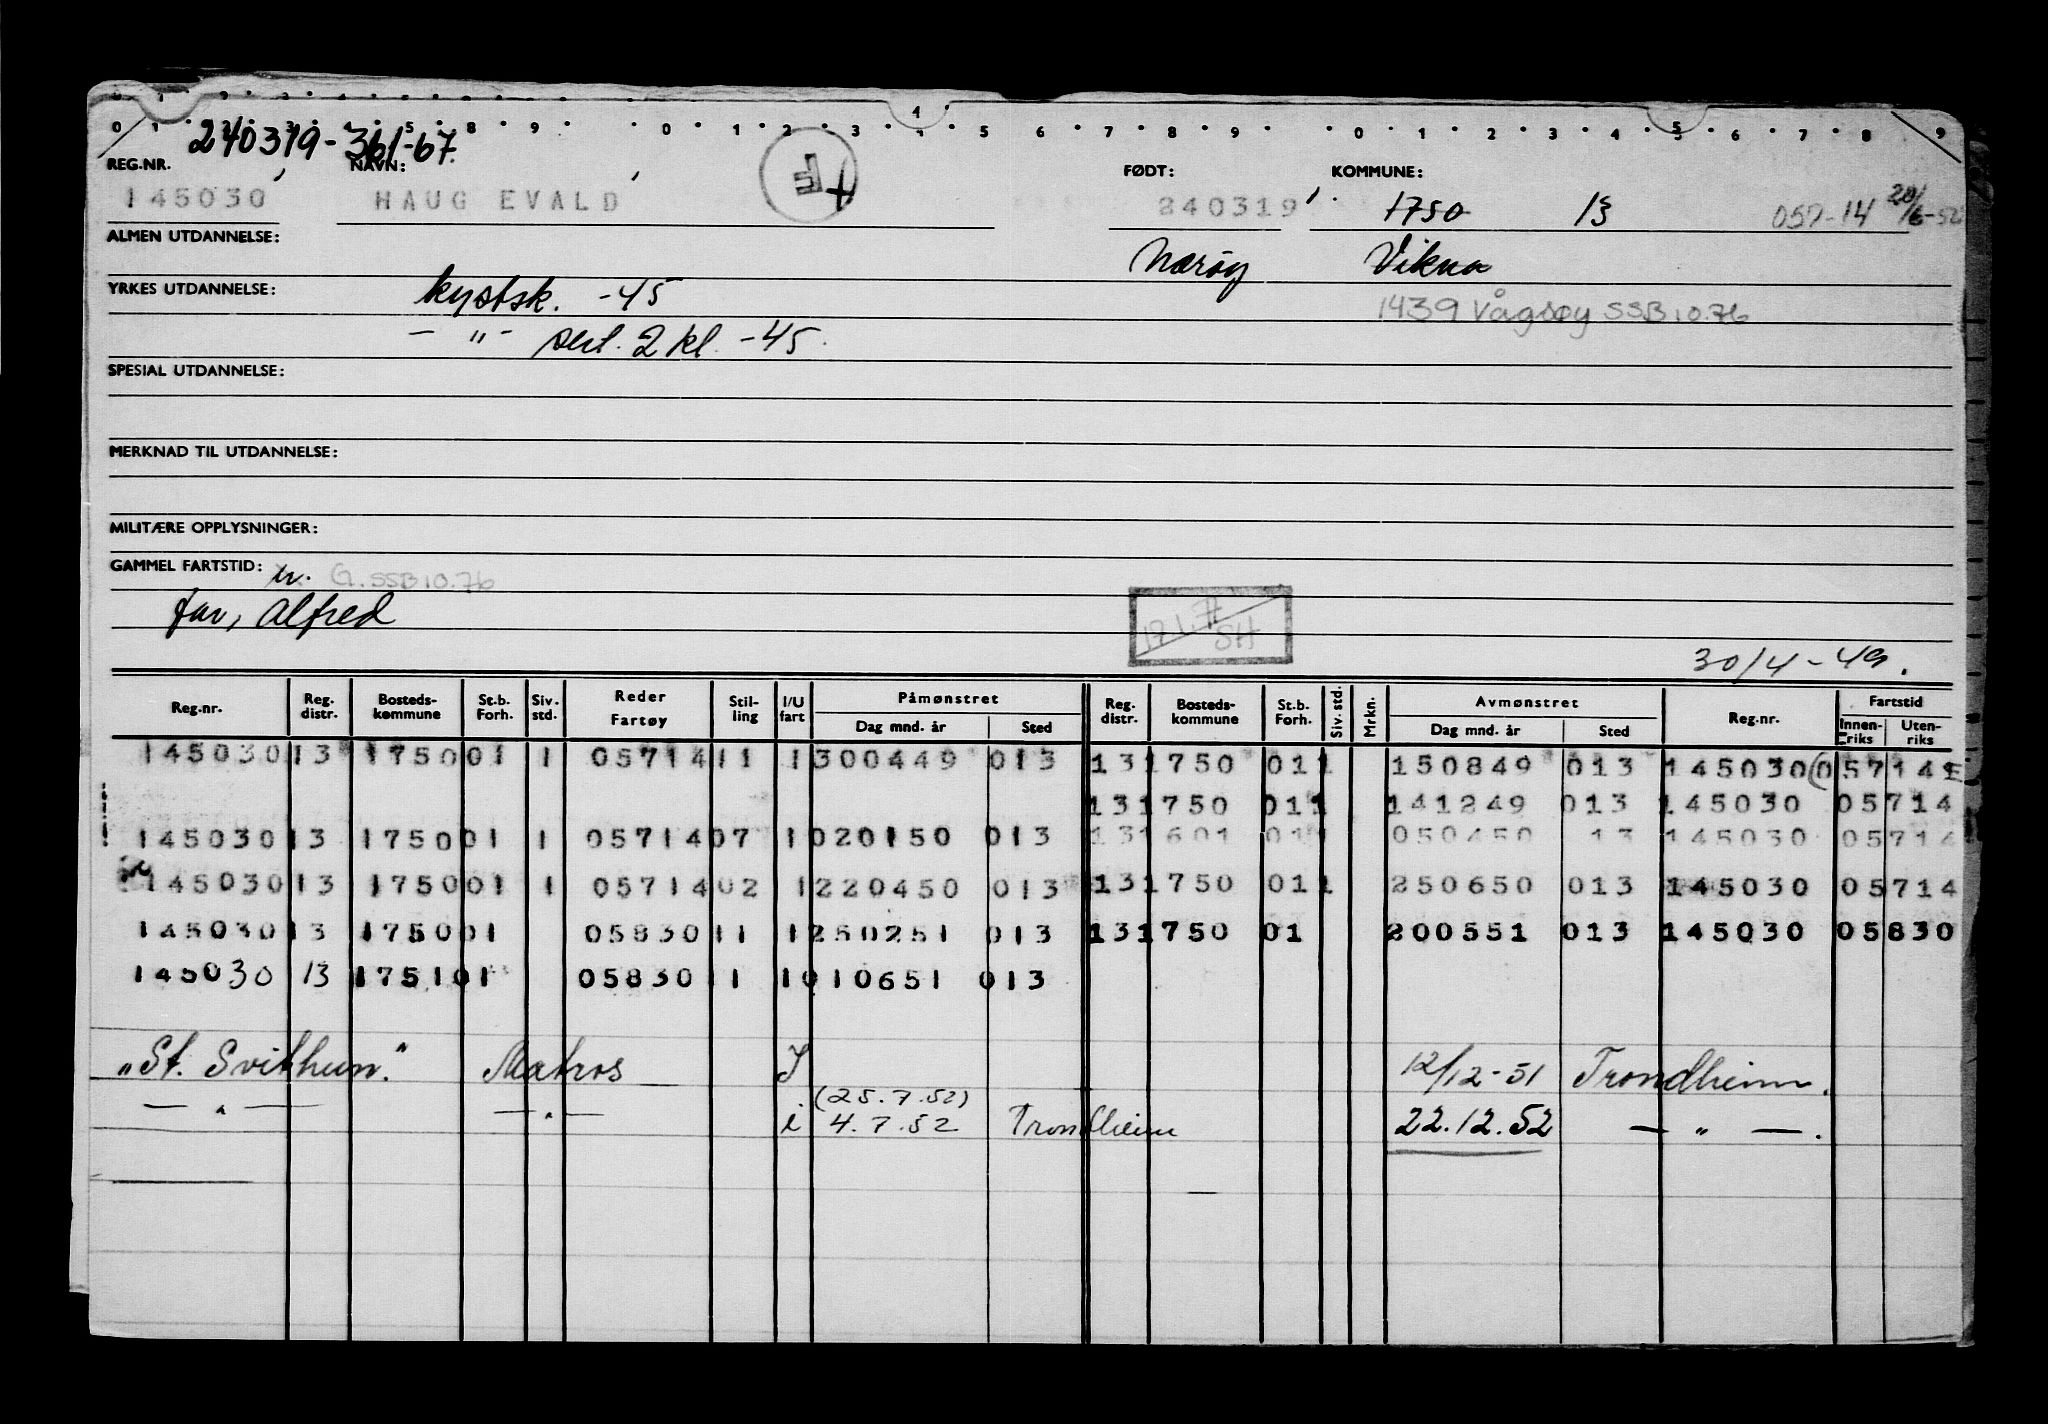 0 1 2 3 4 5 8 9 0 1 2 3 4 5 6 7 8 9 0 1 2 3 4 5 6 7 8 9
240319-361-67.
REG.NR. NAVN: FØDT: KOMMUNE:
145030 HAUG EVALD 240319 1750 13 057-14 20/6-52
ALMEN UTDANNELSE: Nærøy Vikna
YRKES UTDANNELSE: kystsk. -45 1439 Vågsøy SSB 10.76
— " — sert. 2 kl. -45.
SPESIAL UTDANNELSE:
MERKNAD TIL UTDANNELSE:
MILITÆRE OPPLYSNINGER:
GAMMEL FARTSTID: G. SSB 10.76
far, Alfred 17.1.77 SH
30/4-49.
Reg.nr. Reg. distr. Bosteds-kommune St.b. Forh. Siv. std. Reder Fartøy Stil-ling I/U fart Påmønstret Dag mnd. år Sted Reg. distr. Bosteds-kommune St.b. Forh. Siv. std. Mrkn. Avmønstret Dag mnd. år Sted Reg.nr. Fartstid Innen-riks Uten-riks
145030 13 1750 01 1 05714 11 1 300449 013 13 1750 01 1 150849 013 145030 (05714 E
13 1750 01 1 141249 013 145030 05714
145030 13 1750 01 1 05714 07 1 020150 013 13 1601 01 1 050450 13 145030 05714
145030 13 1750 01 1 05714 02 1 220450 013 13 1750 01 1 250650 013 145030 05714
145030 13 1750 01 05830 11 1 250251 013 13 1750 01 200551 013 145030 05830
145030 13 1751 01 05830 11 1 010651 013
"St. Svithun." Matros I 12/12-51 Trondheim.
(25.7.52)
— " — — " — i 4.7.52 Trondheim 22.12.52 — " —.